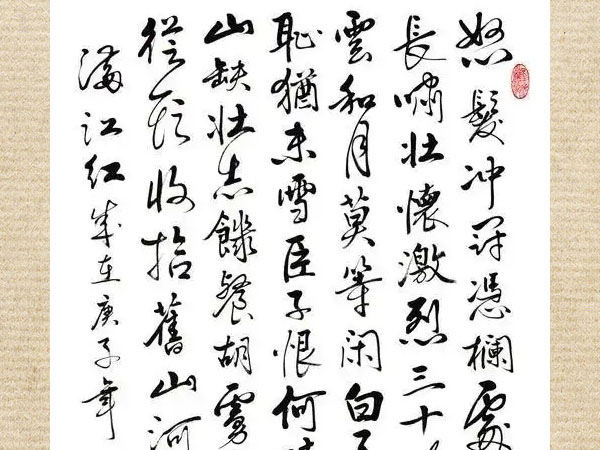 怒髮冲冠憑欄處
長嘯壯懷激烈三十
雲和月莫等闲白
恥猶未雪臣子恨何
山缺壯志饑餐胡虜
從頭收拾舊山河
滿江红歲在庚子年